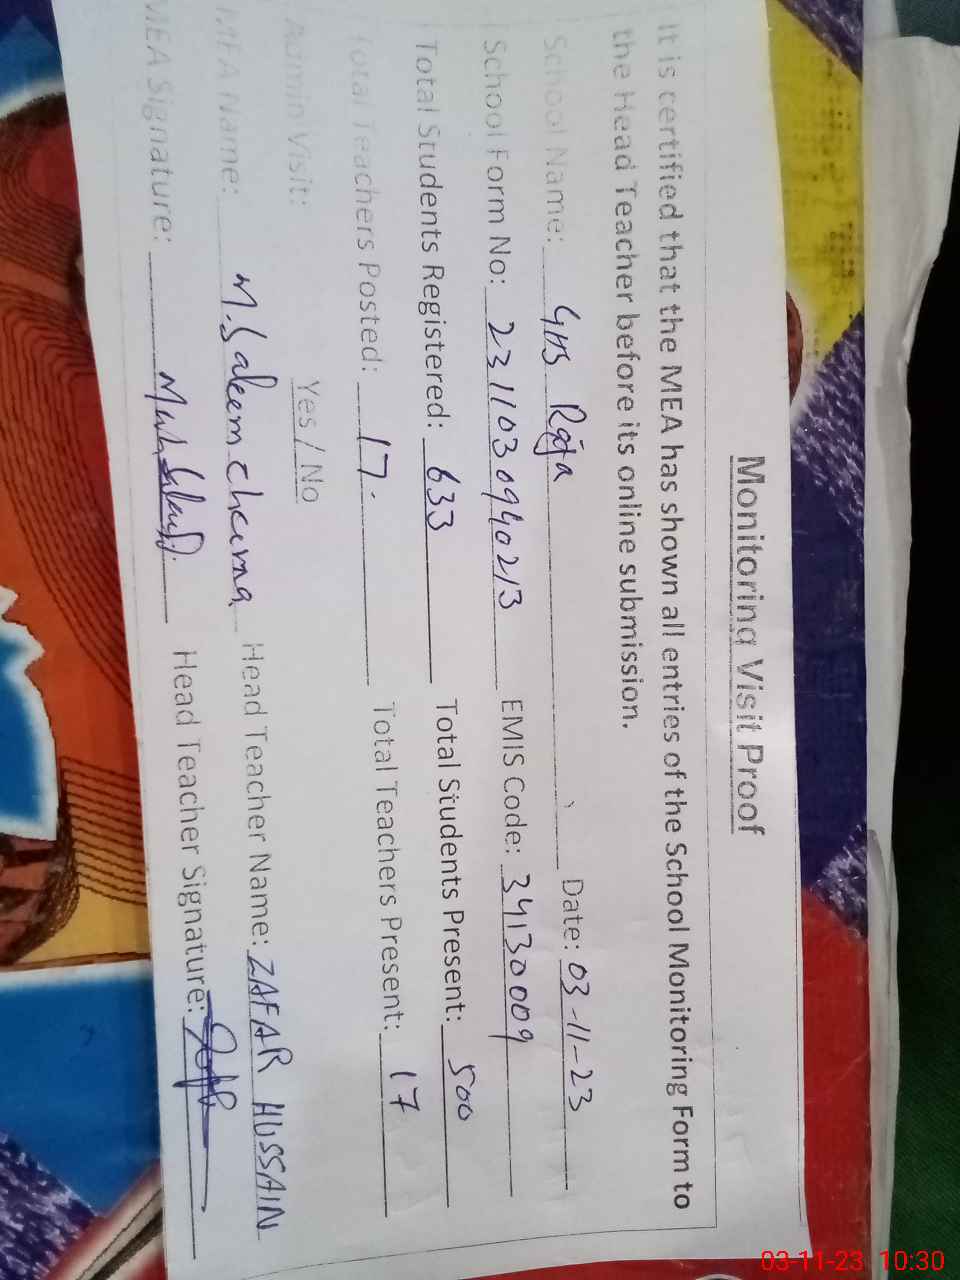 Monitoring Visit Proof
It is certified that the MEA has shown all entries of the School Monitoring Form to
the Head Teacher before its online submission.
School Name: GHS Raja Date: 03-11-23
School Form No: 2311030940213 EMIS Code: 34130009
Total Students Registered: 633 Total Students Present: 500
Total Teachers Posted: 17. Total Teachers Present: 17
Admin Visit: Yes / No
MEA Name: M. Saleem cheema Head Teacher Name: ZAFAR HUSSAIN
MEA Signature: Head Teacher Signature:
03-11-23 10:30